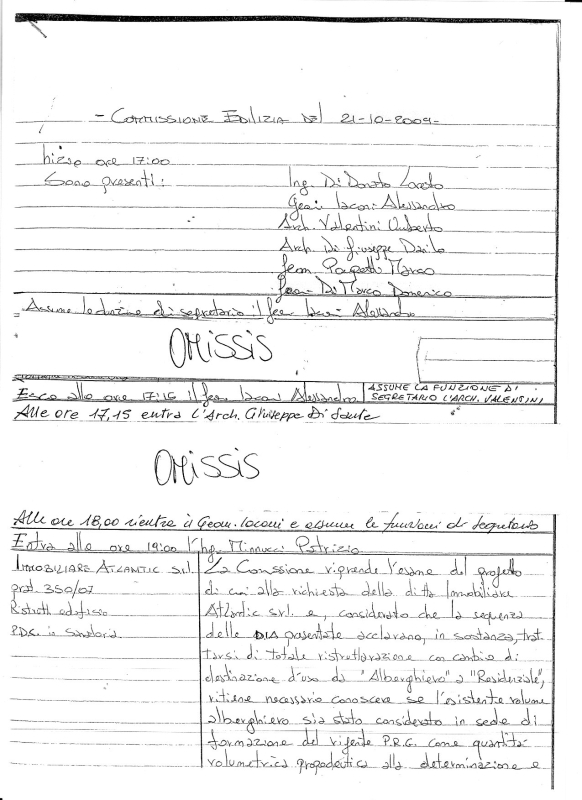 - COMMISSIONE EDILIZIA DEL 21-10-2009-
Inizio ore 17:00
Sono presenti: Ing. Di Donato Loreto
Geom. Iaconi Alessandro
Arch. Valentini Umberto
Arch. Di Giuseppe Danilo
Geom. Marco
Geom. Di Marco Domenico
Assume la funzione di segretario il Geom. Iaconi Alessandro
OMISSIS
Esce alle ore 17:15 il Geom. Iaconi Alessandro
ASSUME LA FUNZIONE DI
SEGRETARIO L'ARCH. VALENTINI
Alle ore 17,15 entra l'Arch. Giuseppe Di Sante
OMISSIS
Alle ore 18,00 rientra il Geom. Iaconi e assume le funzioni di Segretario
Entra alle ore 19:00 l'Ing. Minnucci Patrizio
IMMOBILIARE ATLANTIC S.r.l.
prot. 350/07
Ristrutt. edificio
P.D.C. in sanatoria.
La Commissione riprende l'esame del progetto
di cui alla richiesta della ditta Immobiliare
Atlantic srl. e considerato che la sequenza
delle DIA presentate acclarano, in sostanza, trat
tarsi di totale ristrutturazione con cambio di
destinazione d'uso da "Alberghiero" a "Residenziale",
ritiene necessario conoscere se l'esistente volume
alberghiero sia stato considerato in sede di
formazione del vigente P.R.G. come quantità
volumetrica propedeutica alla determinazione e